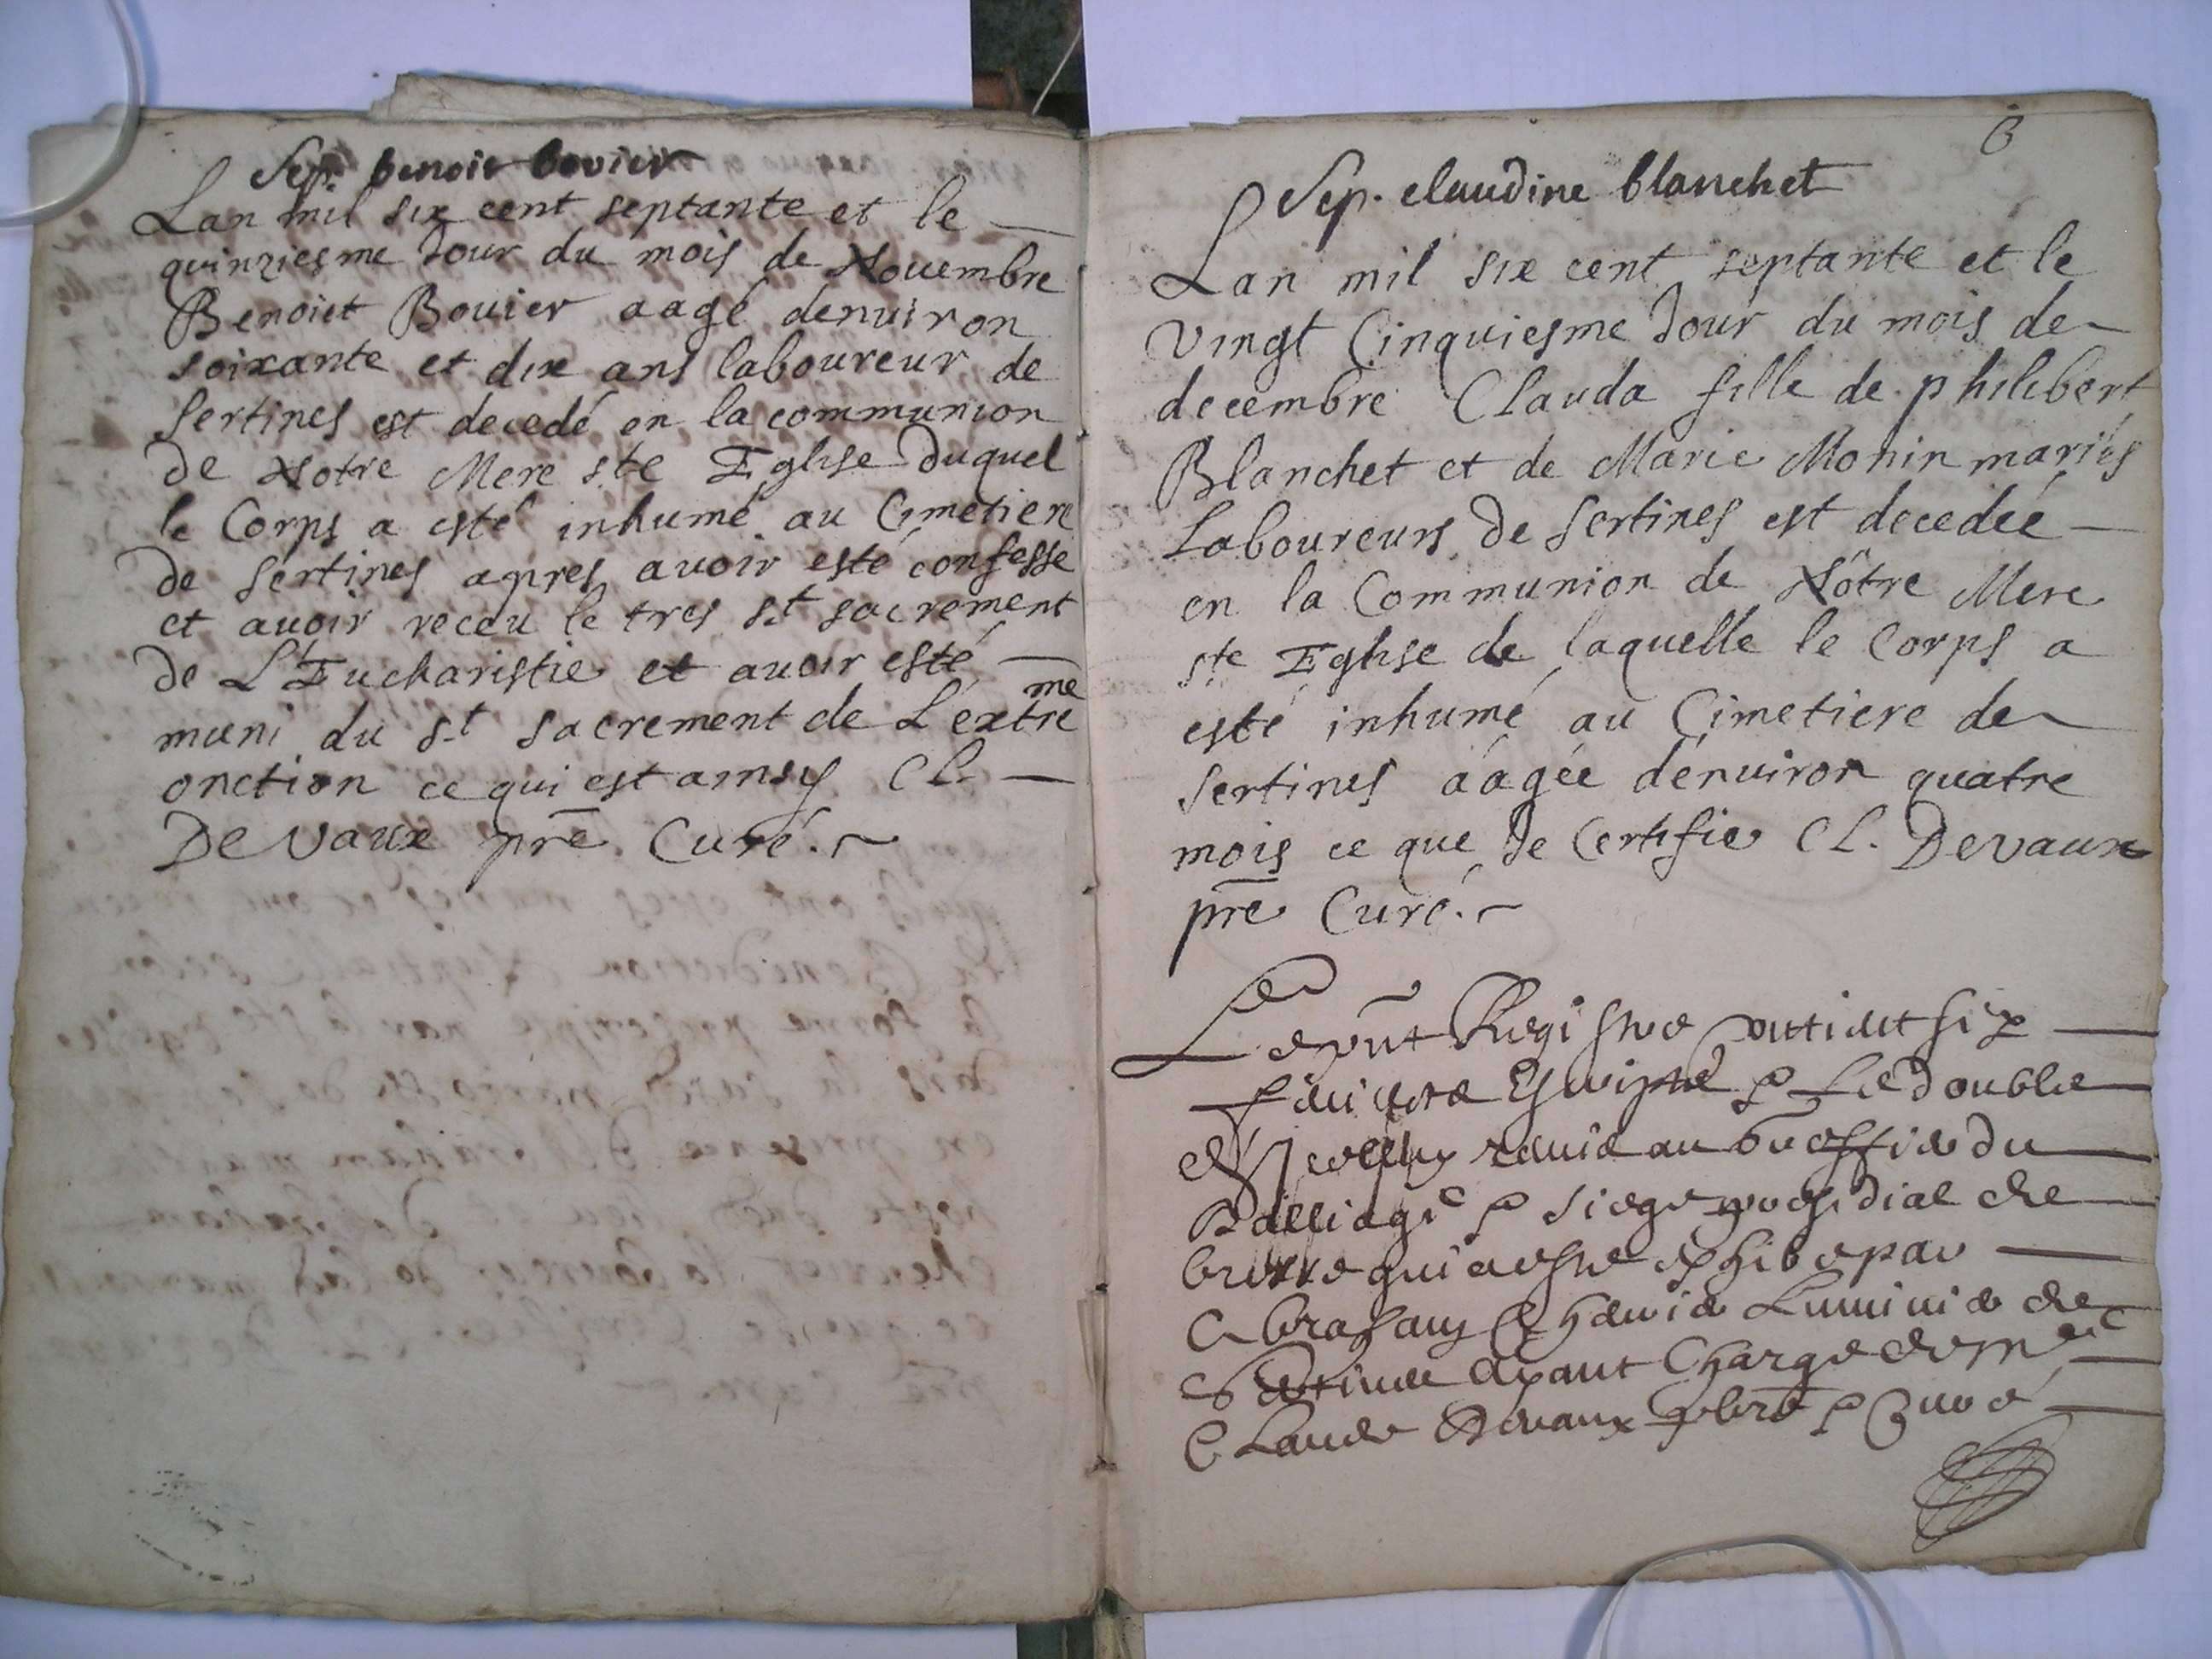 Sep. benoit bovier
Lan mil six cent septante et le
quinziesme Jour du mois de Nouembre
Benoiet Bouier aagé denuiron
soixante et dix ans laboureur de
Sertines est decedé en la communion
de Notre Mere ste Eglise duquel
le Corps a esté inhumé au Cimetiere
de Sertines apres auoir esté confessé
et auoir receu le tres st sacrement
de L'Eucharistie et auoir esté
muni du st sacrement de L'extreme
onction ce qui est ainsy Cl.
De Vaux pre Curé.
6
Sep. claudine blanchet
Lan mil six cent septante et le
vingt Cinquiesme Jour du mois de
decembre Clauda fille de philibert
Blanchet et de Marie Monin mariés
Laboureurs de Sertines est decedée
en la Communion de Nôtre Mere
ste Eglise de laquelle le Corps a
esté inhumé au Cimetiere de
Sertines aágée dénuiron quatre
mois ce que Je Certifie Cl. Devaux
pre Curé.
Le pnt Registre contient six
le double
du
Bailliage siege presidial de
bresse qui a esté exhibe par
Abraham de
Sertines ayant Charge de
Claude Devaux pbre Curé